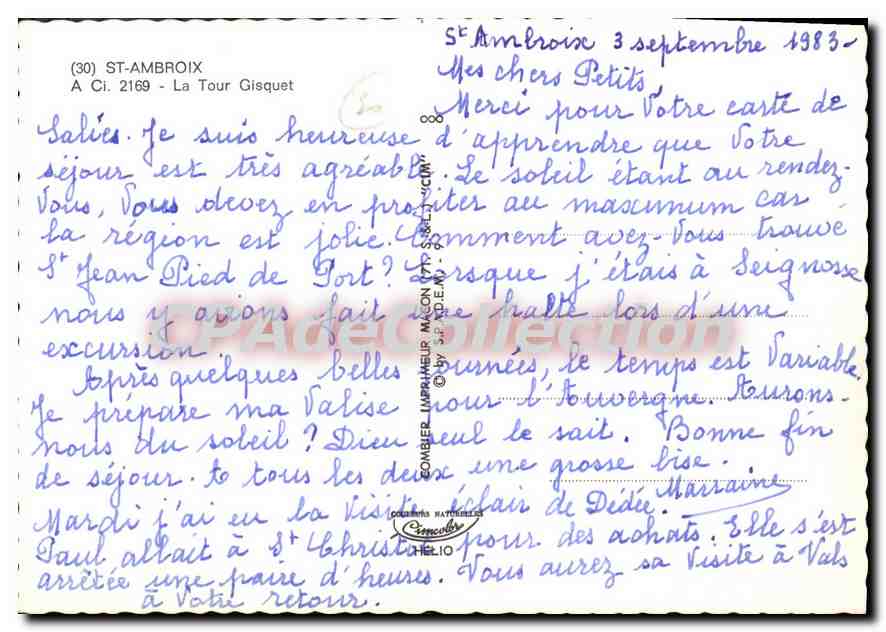 St Ambroix 3 septembre 1983-
(30) ST-AMBROIX
A Ci. 2169 - La Tour Gisquet
Mes chers Petits,
Merci pour Votre carte de
Saliés. Je suis heureuse d'apprendre que Votre
séjour est très agréable. Le soleil étant au rendez-
Vous, Vous devez en profiter au maximum car
la région est jolie. Comment avez-Vous trouvé
St Jean Pied de Port? Lorsque j'étais à Seignosse
nous y avions fait une halte lors d'une
excursion.
Après quelques belles journées, le temps est Variable.
Je prépare ma Valise pour l'Auvergne. Aurons-
nous du soleil? Dieu seul le sait. Bonne fin
de séjour. A tous les deux une grosse bise.
Marraine
Mardi j'ai eu la Visite éclair de Dédée.
Paul allait à St Christol pour des achats. Elle s'est
arrêtée une paire d'heures. Vous aurez sa Visite à Vals
à Votre retour.
COMBIER IMPRIMEUR MACON (71. S.-&-L.) "CIM"
© by S.P.A.D.E.M. - 9
COULEURS NATURELLES
Cimcolor
HELIO
CPAdeCollection